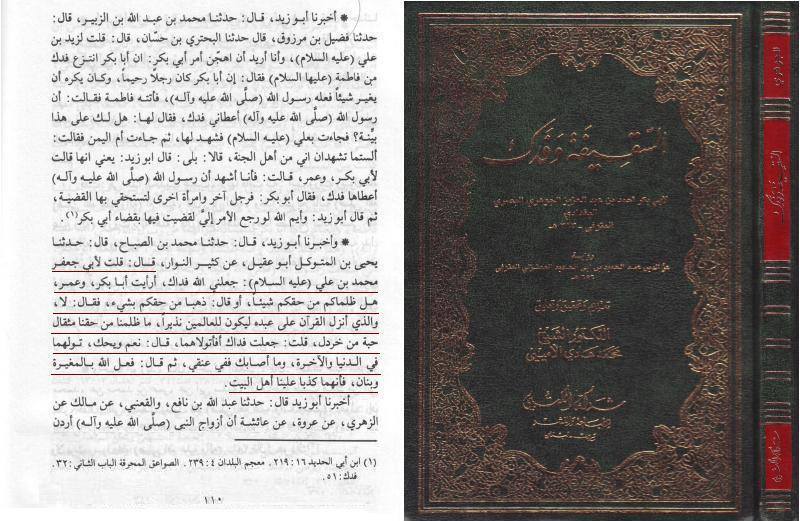 * أخبرنا أبو زيد، قال: حدثنا محمد بن عبد الله بن الزبير، قال:
حدثنا فضيل بن مرزوق، قال حدثنا البحتري بن حسّان، قال: قلت لزيد بن
علي (عليه السلام)، وأنا أريد أن اهجّن أمر أبي بكر: ان أبا بكر انتزع فدك
من فاطمة (عليها السلام) فقال: إن أبا بكر كان رجلاً رحيماً، وكان يكره أن
يغير شيئاً فعله رسول الله (صلّى الله عليه وآلـه)، فأتته فاطمة فقالت: أن
رسول الله (صلّى الله عليه وآله) أعطاني فدك، فقال لهـا: هل لـك على هذا
بيِّنة؟ فجاءت بعلي (عليه السلام) فشهد لها، ثم جاءت أم اليمن فقالت:
ألستما تشهدان اني من أهل الجنة، قالا: بلى: قال ابو زيد: يعني انها قالت
لأبي بكر، وعمر، قالت: فأنـا أشهد أن رسـول الله (صلّى الله عليـه وآلـه)
أعطاها فدك، فقال أبو بكر: فرجل آخر وامرأة اخرى لتستحقي بها القضية،
ثم قال أبو زيد: وأيم الله لو رجع الأمر إليّ لقضيت فيها بقضاء أبي بكر(١).
* وأخبـرنا أبـو زيـد، قـال: حدثنـا محمد بن الصبـاح، قـال: حـدثنـا
يحيى بن المتوكـل أبـو عقيـل، عن كثيـر النوار، قـال: قلت لأبي جعفـر
محمد بن علي (عليه السلام): جعلني الله فداك، أرأيت أبـا بكـر، وعمـر،
هـل ظلمـاكم من حقكم شيئـاً، أو قال: ذهبـا من حقكم بشيء، فقـال: لا،
والذي أنزل القرآن على عبده ليكون للعالمين نذيراً، ما ظلمنا من حقنا مثقال
حبة من خردل، قلت: جعلت فداك أفأتولاهمـا، قـال: نعم ويحـك، تـولهمـا
في الدنيـا والآخـرة، ومـا أصابـك ففي عنقي، ثم قـال: فعـل الله بـالمغيـرة
وبنان، فأنهما كذبا علينا أهل البيت.
أخبرنا أبو زيد قال: حدثنا عبد الله بن نافع، والقعنبي، عن مالك عن
الزهري، عن عروة، عن عائشة أن أزواج النبي (صلّى الله عليه وآلـه) أردن
(١) ابن أبي الحديد ١٦: ٢١٩. معجم البلدان ٤: ٢٣٩. الصواعق المحرقة الباب الثاني: ٣٢.
فدك: ٥١.
١١٠
السقيفة وفدك
لأبي بكر احمد بن عبد العزيز الجوهري البصري
البغدادي
المتوفى
رواية
الدكتور الشيخ
محمد هادي الأميني
السقيفة وفدك